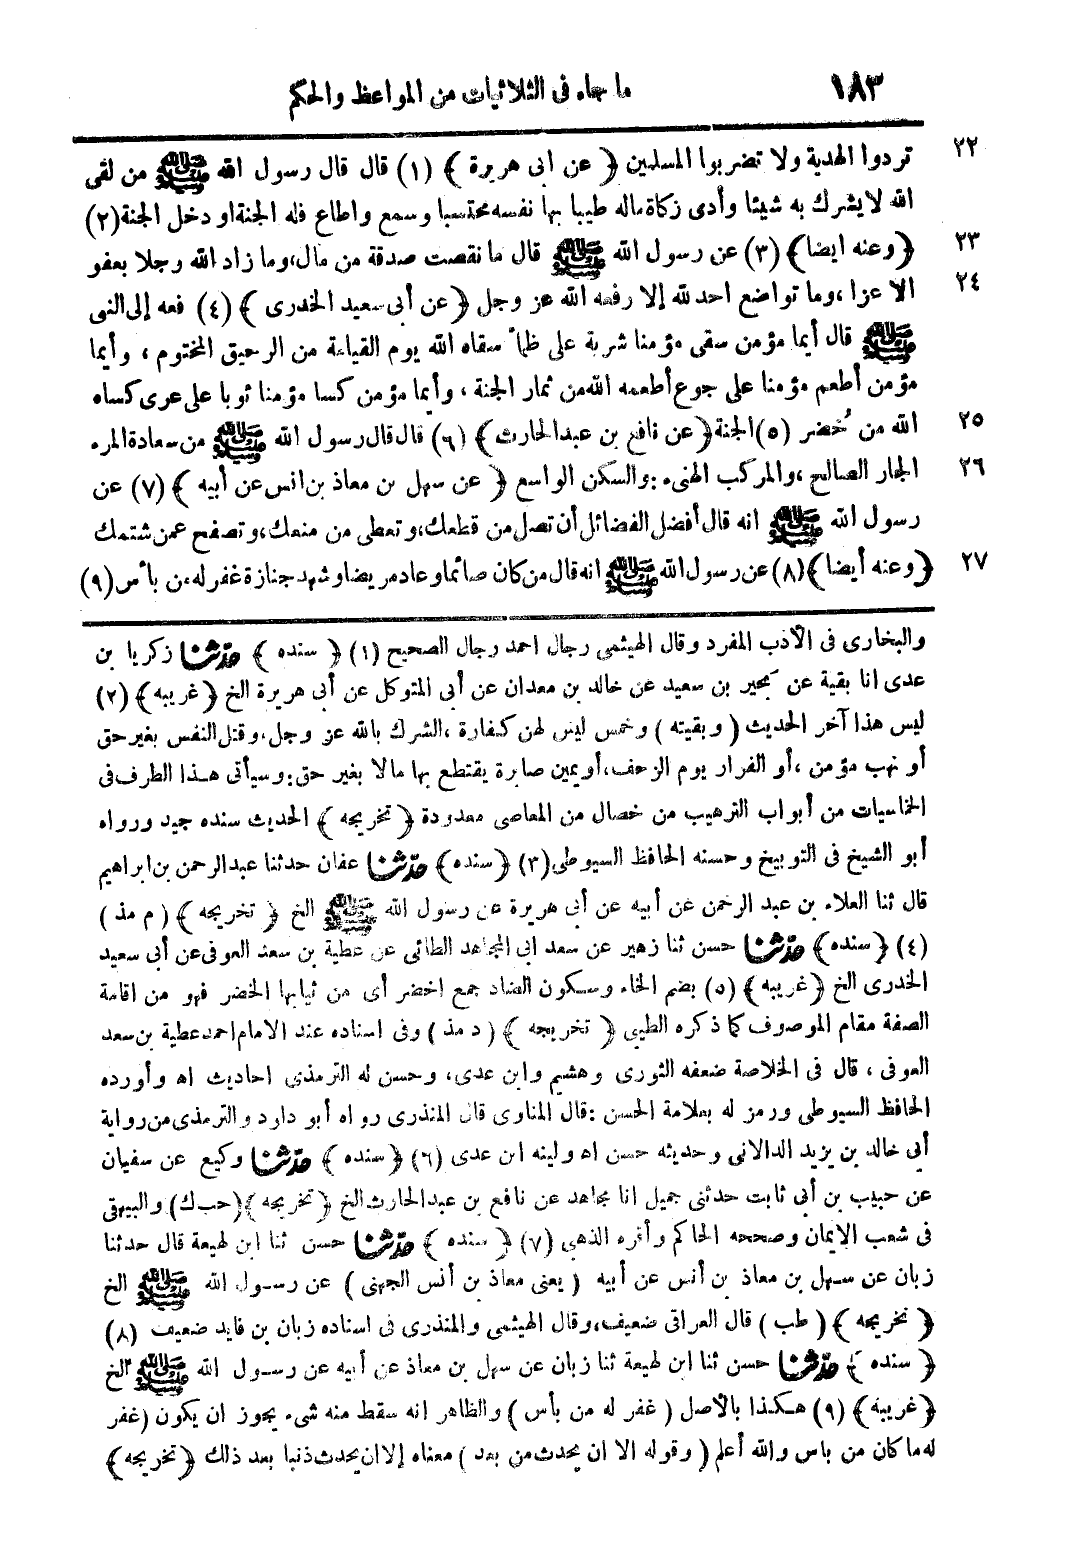 ١٨٣ ما جاء فى الثلاثيات من المواعظ والحكم
٢٢ تردوا الهدية ولا تضربوا المسلمين ﴿ عن ابى هريرة ﴾ (١) قال قال رسول الله ﷺ من لقى
الله لا يشرك به شيئا وأدى زكاة ماله طيبا بها نفسه محتسبا وسمع واطاع فله الجنة او دخل الجنة (٢)
٢٣ ﴿ وعنه ايضا ﴾ (٣) عن رسول الله ﷺ قال ما نقصت صدقة من مال، وما زاد الله رجلا بعفو
٢٤ الا عزا ، وما تواضع احد لله إلا رفعه الله عز وجل ﴿ عن أبى سعيد الخدرى ﴾ (٤) فعه إلى النبى
ﷺ قال أيما مؤمن سقى مؤمنا شربة على ظمأ سقاه الله يوم القيامة من الرحيق المختوم ، وأيما
مؤمن أطعم مؤمنا على جوع أطعمه الله من ثمار الجنة ، وأيما مؤمن كسا مؤمنا ثوبا على عرى كساه
٢٥ الله من خُضر (٥) الجنة ﴿ عن نافع بن عبد الحارث ﴾ (٦) قال قال رسول الله ﷺ من سعادة المرء
٢٦ الجار الصالح ، والمركب الهنىء : والسكن الواسع ﴿ عن سهل بن معاذ بن انس عن أبيه ﴾ (٧) عن
رسول الله ﷺ انه قال أفضل الفضائل أن تصل من قطعك، وتعطى من منعك، وتصفح عمن شتمك
٢٧ ﴿ وعنه أيضا ﴾ (٨) عن رسول الله ﷺ انه قال من كان صائما وعاد مريضا وشهد جنازة غفر له، من بأس (٩)
والبخارى فى الأدب المفرد وقال الهيثمى رجال احمد رجال الصحيح (١) ﴿ سنده ﴾ حدّثنا زكريا بن
عدى انا بقية عن بحير بن سعيد عن خالد بن معدان عن أبى المتوكل عن أبى هريرة الخ ﴿ غريبه ﴾ (٢)
ليس هذا آخر الحديث ( وبقيته ) وخمس ليس لهن كفارة ، الشرك بالله عز وجل، وقتل النفس بغير حق
أو نهب مؤمن ، أو الفرار يوم الزحف، أو يمين صابرة يقتطع بها مالا بغير حق : وسيأتى هـذا الطرف فى
الخماسيات من أبواب الترهيب من خصال من المعاصى معدودة ﴿ تخريجه ﴾ الحديث سنده جيد ورواه
أبو الشيخ فى التوبيخ وحسنه الحافظ السيوطى (٣) ﴿ سنده ﴾ حدّثنا عفان حدثنا عبد الرحمن بن ابراهيم
قال ثنا العلاء بن عبد الرحمن عن أبيه عن أبى هريرة عن رسول الله ﷺ الخ ﴿ تخريجه ﴾ ( م مذ )
(٤) ﴿ سنده ﴾ حدّثنا حسن ثنا زهير عن سعد ابى المجاهد الطائى عن عطية بن سعد العوفى عن أبى سعيد
الخدرى الخ ﴿ غريبه ﴾ (٥) بضم الخاء وسكون الضاد جمع اخضر أى من ثيابها الخضر فهو من اقامة
الصفة مقام الموصوف كما ذكره الطيبى ﴿ تخريجه ﴾ ( د مذ ) وفى اسناده عند الامام احمد عطية بن سعد
العوفى ، قال فى الخلاصة ضعفه الثورى وهشيم وابن عدى، وحسن له الترمذى احاديث اه وأورده
الحافظ السيوطى ورمز له بعلامة الحسن : قال المناوى قال المنذرى رواه أبو دارد والترمذى من رواية
أبى خالد بن يزيد الدالانى وحديثه حسن اه ولينه ابن عدى (٦) ﴿ سنده ﴾ حدّثنا وكيع عن سفيان
عن حبيب بن أبى ثابت حدثنى جميل انا مجاهد عن نافع بن عبد الحارث الخ ﴿ تخريجه ﴾ (حب ك) والبيهقى
فى شعب الايمان وصححه الحاكم وأقره الذهبى (٧) ﴿ سنده ﴾ حدّثنا حسن ثنا ابن لهيعة قال حدثنا
زبان عن سهل بن معاذ بن أنس عن أبيه ( يعنى معاذ بن أنس الجهنى ) عن رسول الله ﷺ الخ
﴿ تخريجه ﴾ ( طب ) قال العراقى ضعيف، وقال الهيثمى والمنذرى فى اسناده زبان بن فايد ضعيف (٨)
﴿ سنده ﴾ حدّثنا حسن ثنا ابن لهيعة ثنا زبان عن سهل بن معاذ عن أبيه عن رسول الله ﷺ الخ
﴿ غريبه ﴾ (٩) هكذا بالأصل ( غفر له من بأس ) والظاهر انه سقط منه شىء يجوز ان يكون (غفر
له ما كان من باس والله أعلم ( وقوله الا ان يحدث من بعد ) معناه إلا ان يحدث ذنبا بعد ذلك ﴿ تخريجه ﴾